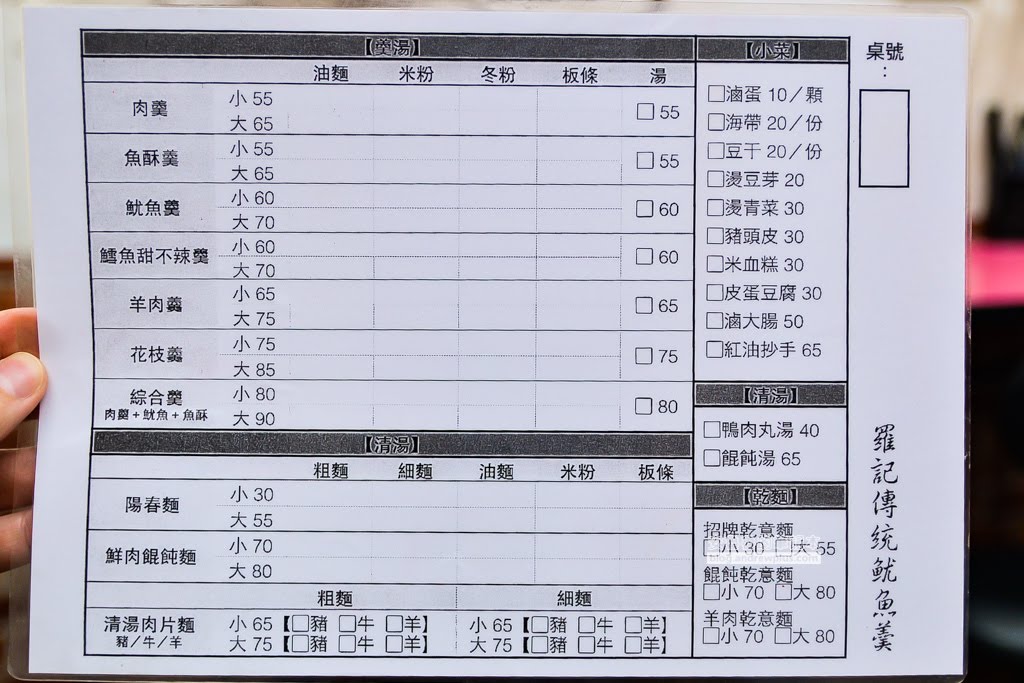 【羹湯】
油麵 米粉 冬粉 板條 湯
肉羹 小 55 大 65 □ 55
魚酥羹 小 55 大 65 □ 55
魷魚羹 小 60 大 70 □ 60
鱈魚甜不辣羹 小 60 大 70 □ 60
羊肉羹 小 65 大 75 □ 65
花枝羹 小 75 大 85 □ 75
綜合羹 小 80 大 90 □ 80
肉羹+魷魚+魚酥
【清湯】
粗麵 細麵 油麵 米粉 板條
陽春麵 小 30 大 55
鮮肉餛飩麵 小 70 大 80
粗麵 細麵
清湯肉片麵 小 65【□豬 □牛 □羊】 小 65【□豬 □牛 □羊】
豬/牛/羊 大 75【□豬 □牛 □羊】 大 75【□豬 □牛 □羊】
【小菜】
□滷蛋 10/顆
□海帶 20/份
□豆干 20/份
□燙豆芽 20
□燙青菜 30
□豬頭皮 30
□米血糕 30
□皮蛋豆腐 30
□滷大腸 50
□紅油抄手 65
【清湯】
□鴨肉丸湯 40
□餛飩湯 65
【乾麵】
招牌乾意麵
□小 30 □大 55
餛飩乾意麵
□小 70 □大 80
羊肉乾意麵
□小 70 □大 80
桌號
:
羅記傳統魷魚羹